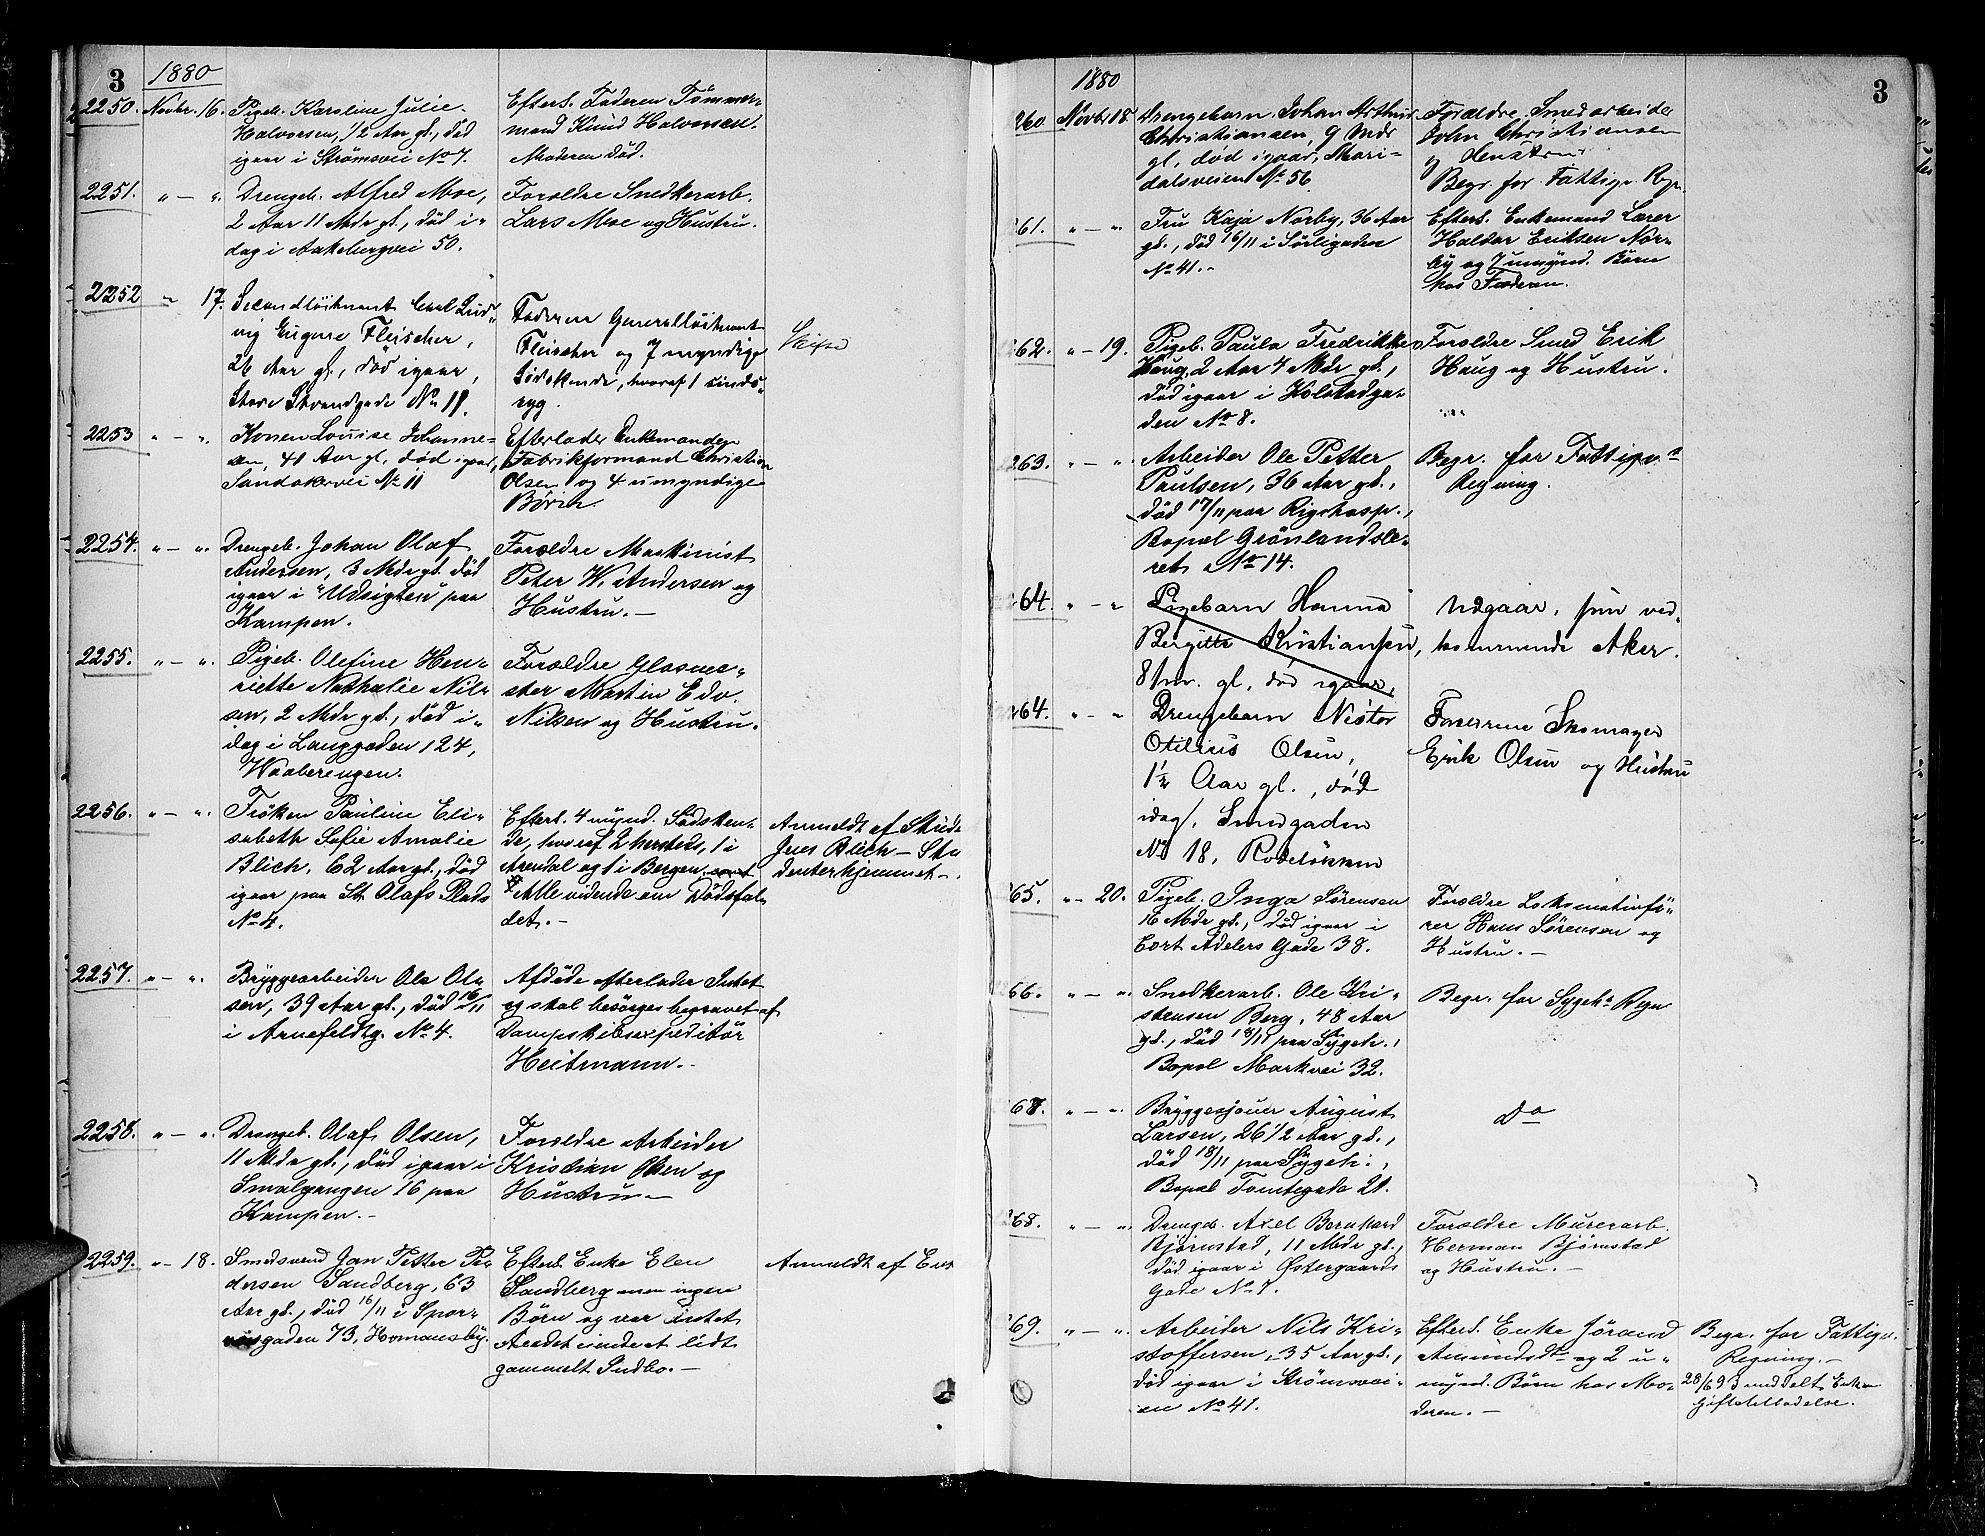 3
1880
2250. Novbr. 16. Pigeb. Karoline Julie
Halvorsen, 1/2 Aar gl., död
igaar i Strömsvei No 7.
Efterl. Faderen Tömmer-
mand Knud Halvorsen.
Moderen död.
2251. " — " Drengeb. Alfred Moe,
2 Aar 11 Mdr gl., död i-
dag i Aakebergvei 50.
Forældre Snedkerarb.
Lars Moe og Hustru.
2252 " 17. Secondlöitnant Carl Lud-
vig Eugene Fleischer,
26 Aar gl., död igaar,
Store Strandgade No 11.
Faderen Generallöitnant
Fleischer og 7 myndige
Södskende, hvoraf 1 sinds-
syg.
Skifte
2253 " — " Konen Louise Johanne-
sen, 41 Aar gl, död igaar,
Sandakervei No 11
Efterlader Enkemanden
Fabrikformand Christian
Olsen og 4 umyndige
Börn
2254. " — " Drengeb. Johan Olaf
Andersen, 3 Mdr gl. död
igaar i "Udsigten" paa
Kampen.
Forældre Maskinist
Peter W. Andersen og
Hustru. —
2255. " — " Pigeb. Olefine Hen-
riette Nathalie Nil-
sen, 2 Mdr gl., död i-
dag i Langgaden 124,
Waalerengen.
Forældre Glasme-
ster Martin Edv.
Nilsen og Hustru.
2256. " — " Fröken Pauline Eli-
sabeth Sofie Amalie
Blich, 62 Aar gl., död
igaar paa St. Olafs Plads
No 4.
Efterl. 4 mynd. Södsken-
de, hvoraf 2 herteds, 1 i
Arendal og 1 i Bergen.
Alle vidende om Dödsfal-
det. —
Anmeldt af Stud.
Jens Blich — Stu
denterhjemmet —.
2257. " — " Bryggearbeider Ole Ol-
sen, 39 Aar gl., död 16/11
i Arnefeldtg. No 4.
Afdöde efterlader Intet
og skal besörges begravet af
Dampskibsexpeditör
Heitmann. -
2258. " — " Drengeb. Olaf Olsen,
11 Mdr gl., död igaar i
Smalgangen 16 paa
Kampen. —
Forældre Arbeider
Kristian Olsen og
Hustru —
2259. " — 18. Smedsvend Jan Petter Pe
dersen Sandberg, 63
Aar gl., död 16/11 i Spor-
veisgaden 73, Homansby.
Efterl. Enke Elen
Sandberg men ingen
Börn og var intet
Andet eiende et lidt
gammelt Indbo. —
Anmeldt af Enk
1880
3
260 Novbr 18. Drengebarn Johan Arthur
Christiansen, 9 Mdr
gl., död igaar, Mari-
dalsveien No 56
Forældre Smedarbeider
John Christiansen
og Hustru
Begr. for Fattigv. Rgn.
261. " — " Fru Kaja Norby, 36 Aar
gl., död 16/11 i Sörligaden
No 41. -
Efterl. Enkemand Lærer
Haldor Eriksen Nor-
by og 7 umynd. Börn
hos Faderen.
262. " — 19. Pigeb. Paula Fredrikke
Haug, 2 Aar 4 Mdr gl.,
död igaar i Kolstadga-
den No 8.
Forældre Smed Erik
Haug og Hustru.
263. " — " Arbeider Ole Petter
Paulsen, 36 Aar gl.,
död 17/11 paa Rigshosp.,
Bopæl Grönlandsle-
ret No 14.
Begr. for Fattigv.s
Regning.
264. " — " Pigebarn Hanna
Bergitte Kristiansen,
8 gl., död igaar,
Udgaar, som ved-
kommende Aker.
264. " — " Drengebarn Nestor
Otilius Olsen,
1 1/2 Aar gl., död
idag, Smedgaden
No 18, Rodelökken
Forældrene Skomager
Erik Olsen og Hustru
265. " — 20. Pigeb. Inga Sörensen
16 Mdr gl., död igaar i
Cort Adelers Gade 38.
Forældre Lokomotivfö-
rer Hans Sörensen og
Hustru. —
266. " — " Snedkerarb. Ole Kri-
stensen Berg, 48 Aar
gl., död 18/11 paa Sygeh.,
Bopæl Markvei 32.
Begr. for Sygeh.s Rgn
267. " — " Bryggesjouer August
Larsen, 26 1/2 Aar gl.,
död 18/11 paa Sygeh.,
Bopæl Tomtegade 21.
Do
268. " — " Drengeb. Axel Bernhard
Bjørnstad, 11 Mdr gl.,
död igaar i Østergaards
Gade No 7.
Forældre Murerarb.
Herman Bjørnstad
og Hustru. —
269. " — " Arbeider Nils Kri-
stoffersen, 35 Aar gl.,
död igaar i Strömsvei-
en No 41.
Efterl. Enke Jörand
Amundsdtr og 2 u-
mynd. Börn hos Mo-
deren. —
Begr. for Fattigv.
Regning. —
28/6 93 meddelt Enken
Giftetilladelse.